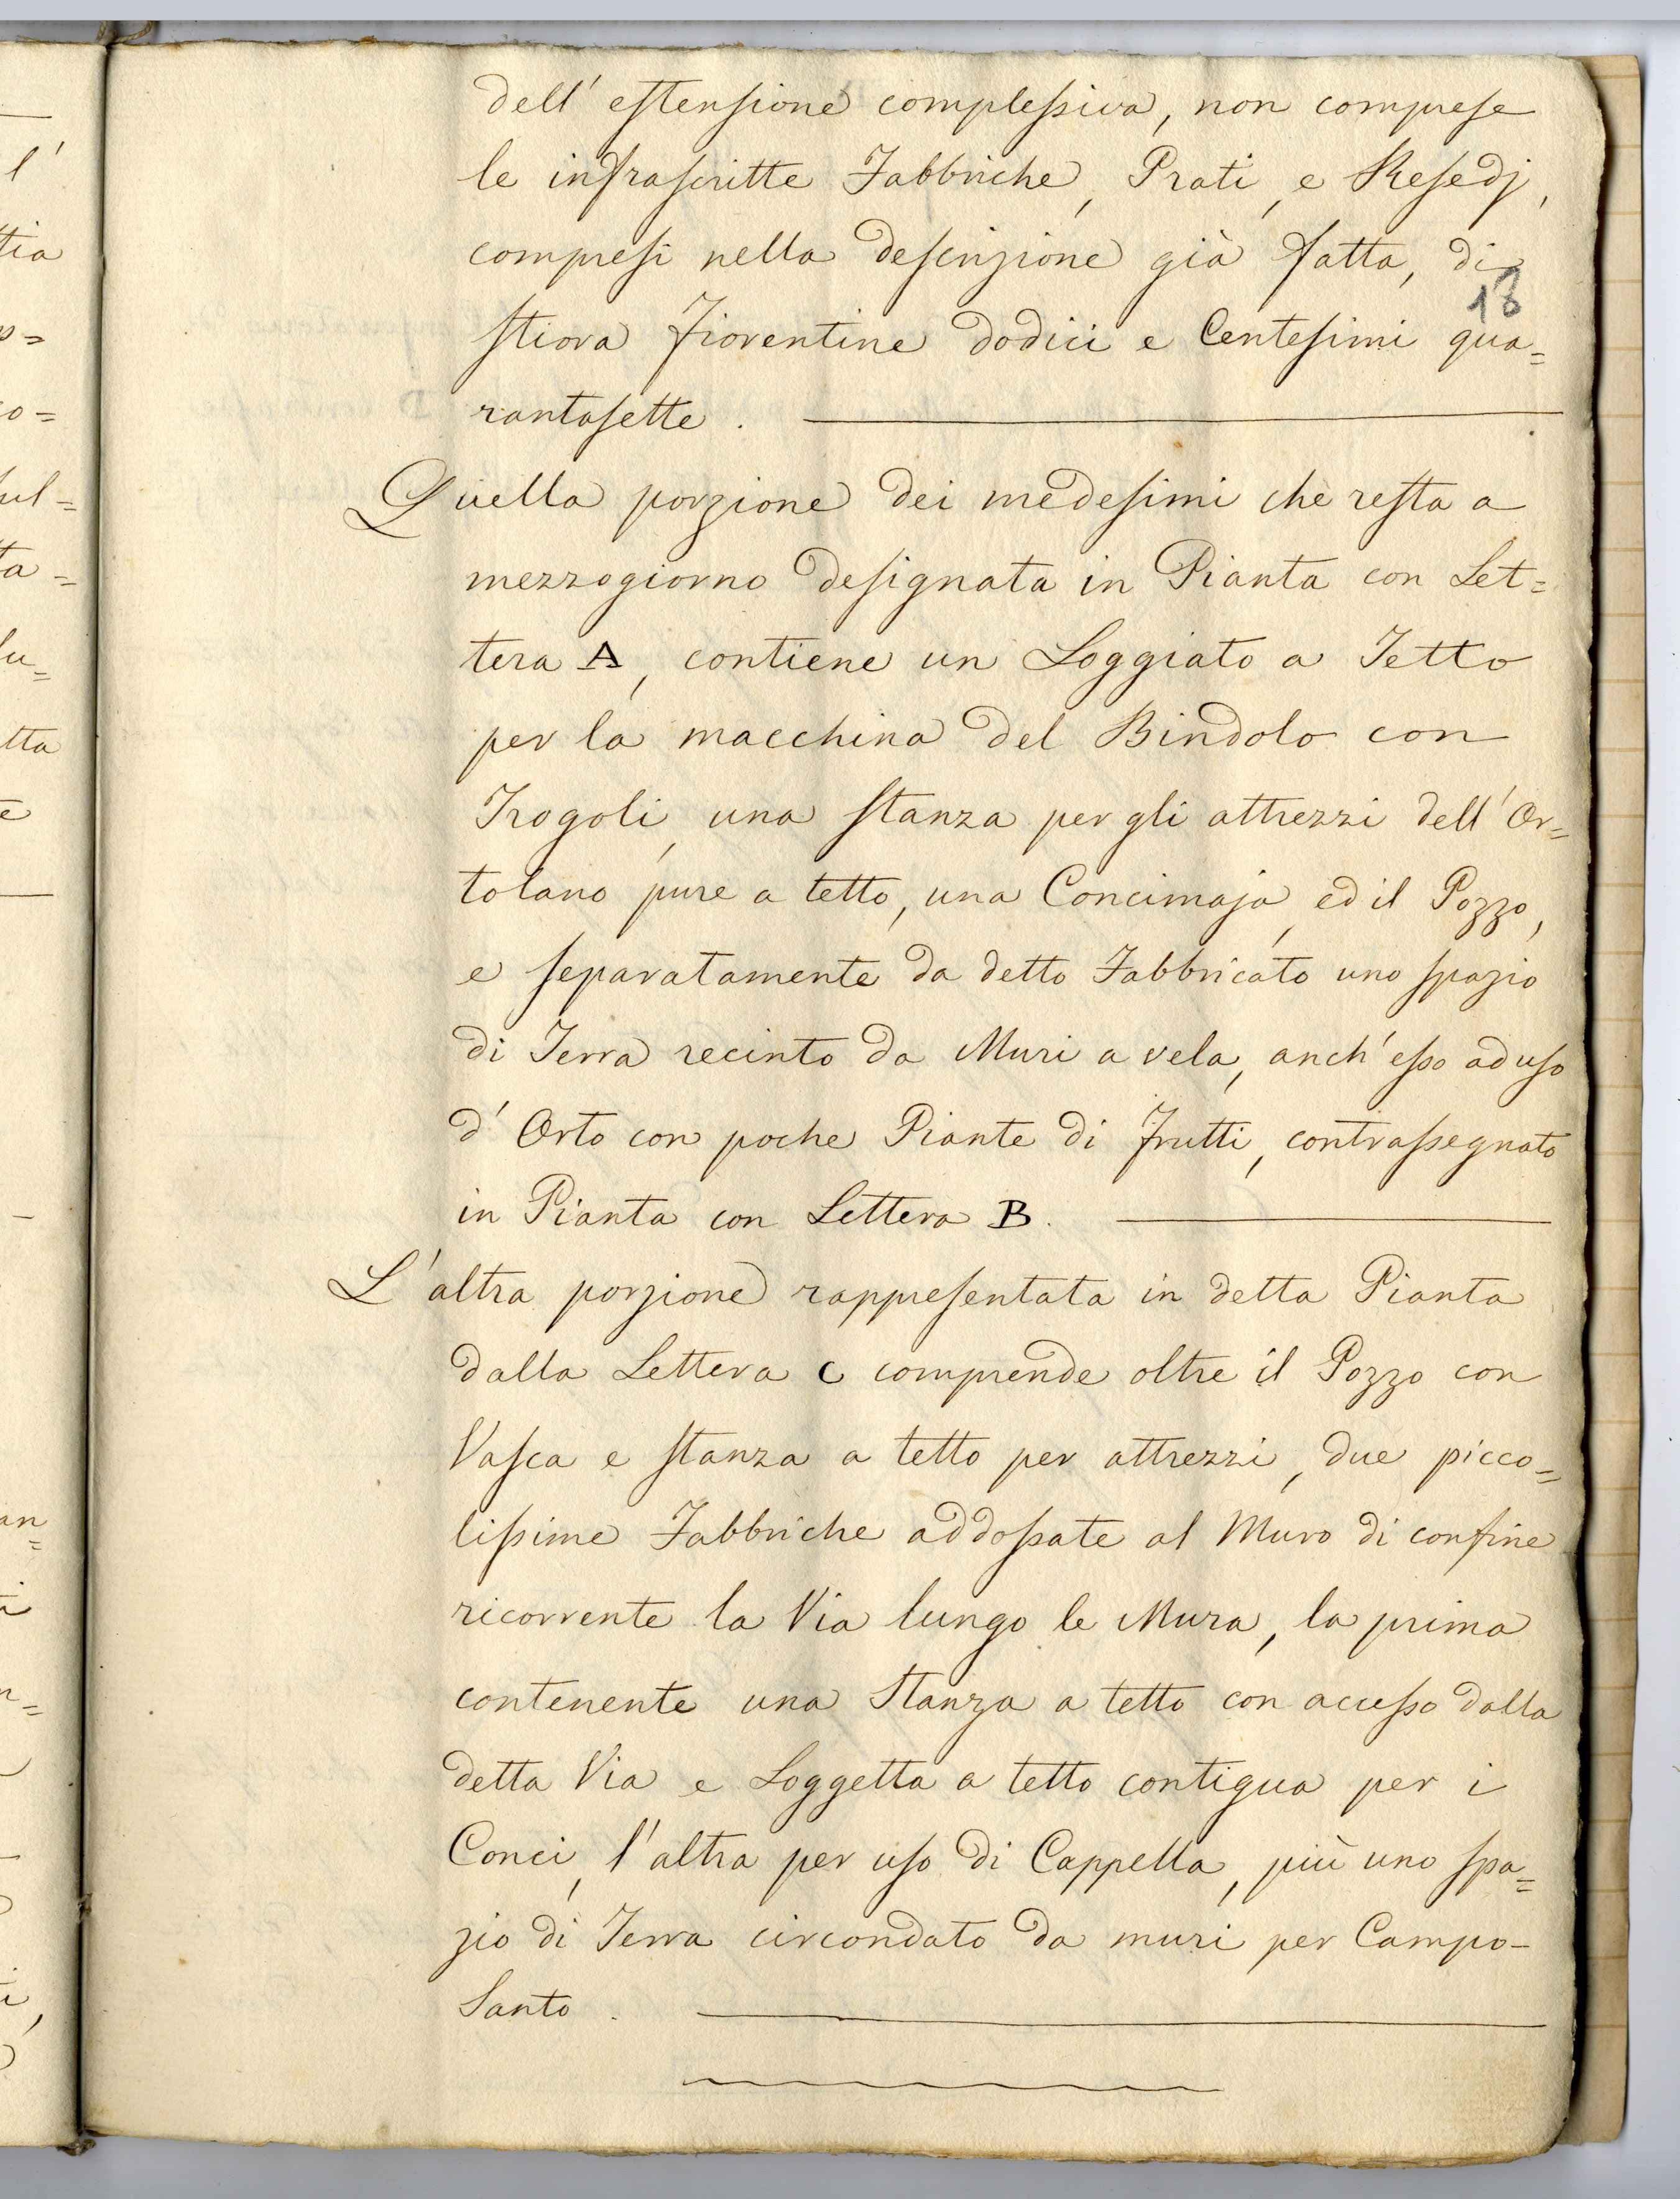 dell' estensione complessiva, non comprese
le infrascritte Fabbriche, Prati, e Resedj,
compresi nella descrizione già fatta, di
18
stiora fiorentine dodici e Centesimi qua=
rantasette.
Quella porzione dei medesimi che resta a
mezzogiorno designata in Pianta con Let=
tera A, contiene un Loggiato a Tetto
per la macchina del Bindolo con
Trogoli, una stanza per gli attrezzi dell' Or=
tolano pure a tetto, una Concimaja, ed il Pozzo,
e separatamente da detto Fabbricato uno spazio
di Terra recinto da Muri a vela, anch' esso ad uso
d' Orto con poche Piante di frutti, contrassegnato
in Pianta con Lettera B.
L'altra porzione rappresentata in detta Pianta
dalla Lettera C comprende oltre il Pozzo con
Vasca e stanza a tetto per attrezzi, due picco=
lissime Fabbriche addossate al Muro di confine
ricorrente la Via lungo le Mura, la prima
contenente una Stanza a tetto con accesso dalla
detta Via e Loggetta a tetto contigua per i
Conci, l'altra per uso di Cappella, più uno spa=
zio di Terra circondato da muri per Campo-
Santo.